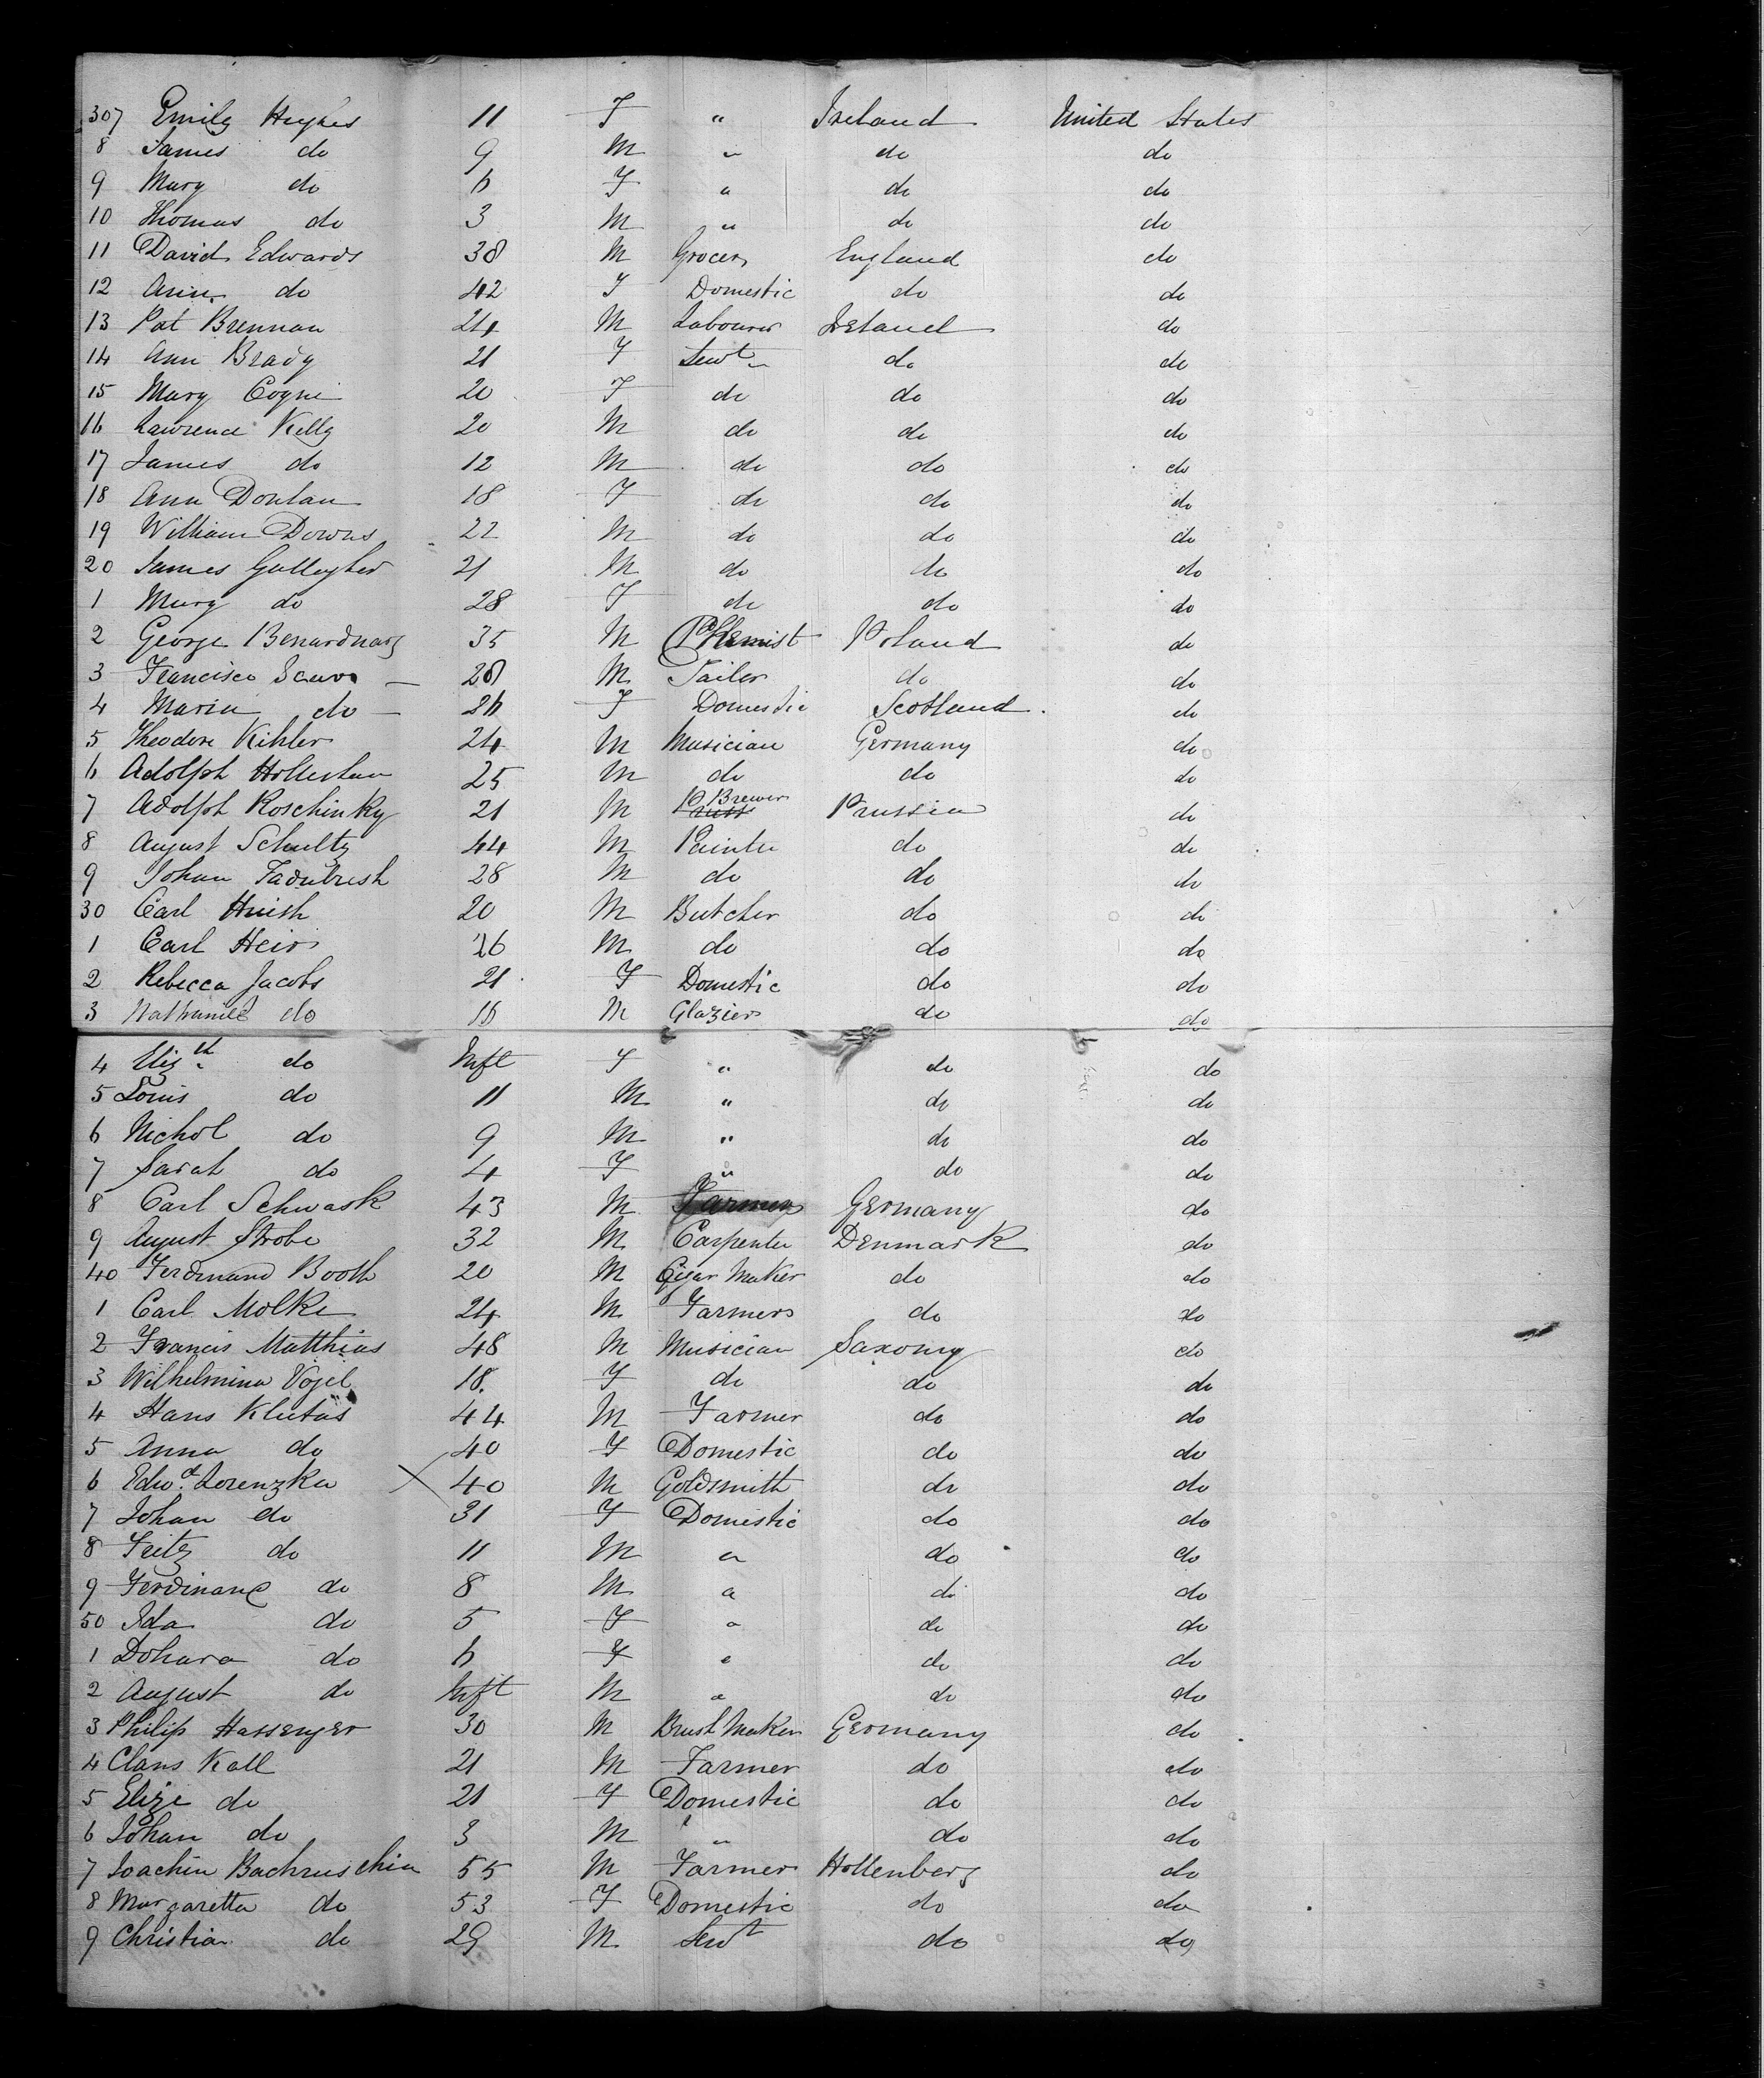 307 Emily Hughes 11 F " Ireland United States
8 James do 9 M " do do
9 Mary do 6 F " do do
10 Thomas do 3 M " do do
11 David Edwards 38 M Grocer England do
12 Ann do 42 F Domestic do do
13 Pat Brennan 24 M Labourer Ireland do
14 Ann Brady 21 F Servt do do
15 Mary Cogne 20 F do do do
16 Lawrence Kelly 20 M do do do
17 James do 12 M do do do
18 Ann Donlan 18 F do do do
19 William Downs 22 M do do do
20 James Gallagher 21 M do do do
1 Mary do 28 F do do do
2 George 35 M Poland do
3 Francisco 28 M Tailor do do
4 Maria do 26 F Domestic Scotland do
5 Theodore Kihler 24 M Musician Germany do
6 Adolph 25 M do do do
7 Adolph Roschinky 21 M Brewer Prussia do
8 August Schultz 44 M Painter do do
9 Johan 28 M do do do
30 Carl Huish 20 M Butcher do do
1 Carl Heir 26 M do do do
2 Rebecca Jacobs 21 F Domestic do do
3 Nathaniel do 16 M Glazier do do
4 Elizth do Inft F " do do
5 Louis do 11 M " do do
6 Nichol do 9 M " do do
7 Sarah do 4 F " do do
8 Carl Schwask 43 M Farmer Germany do
9 August Strobe 32 M Carpenter Denmark do
40 Ferdinand Booth 20 M Cigar Maker do do
1 Carl Molke 24 M Farmers do do
2 Francis Matthias 48 M Musician Saxony do
3 Wilhelmina Vogel 18. F do do do
4 Hans Klutas 44 M Farmer do do
5 Anna do 40 F Domestic do do
6 Edwd. Lorenzka 40 M Goldsmith do do
7 Johan do 31 F Domestic do do
8 Fritz do 11 M " do do
9 Ferdinand do 8 M " do do
50 Ida do 5 F " do do
1 Dohara do 6 F " do do
2 August do Inft M " do do
3 Philip Hassenger 30 M Brush Maker Germany do
4 Claus Kall 21 M Farmer do do
5 Elize do 21 F Domestic do do
6 Johan do 3 M " do do
7 Joachin Bachruschin 55 M Farmer Hollenberg do
8 Margaretta do 53 F Domestic do do
9 Christian do 29 M Servt do do